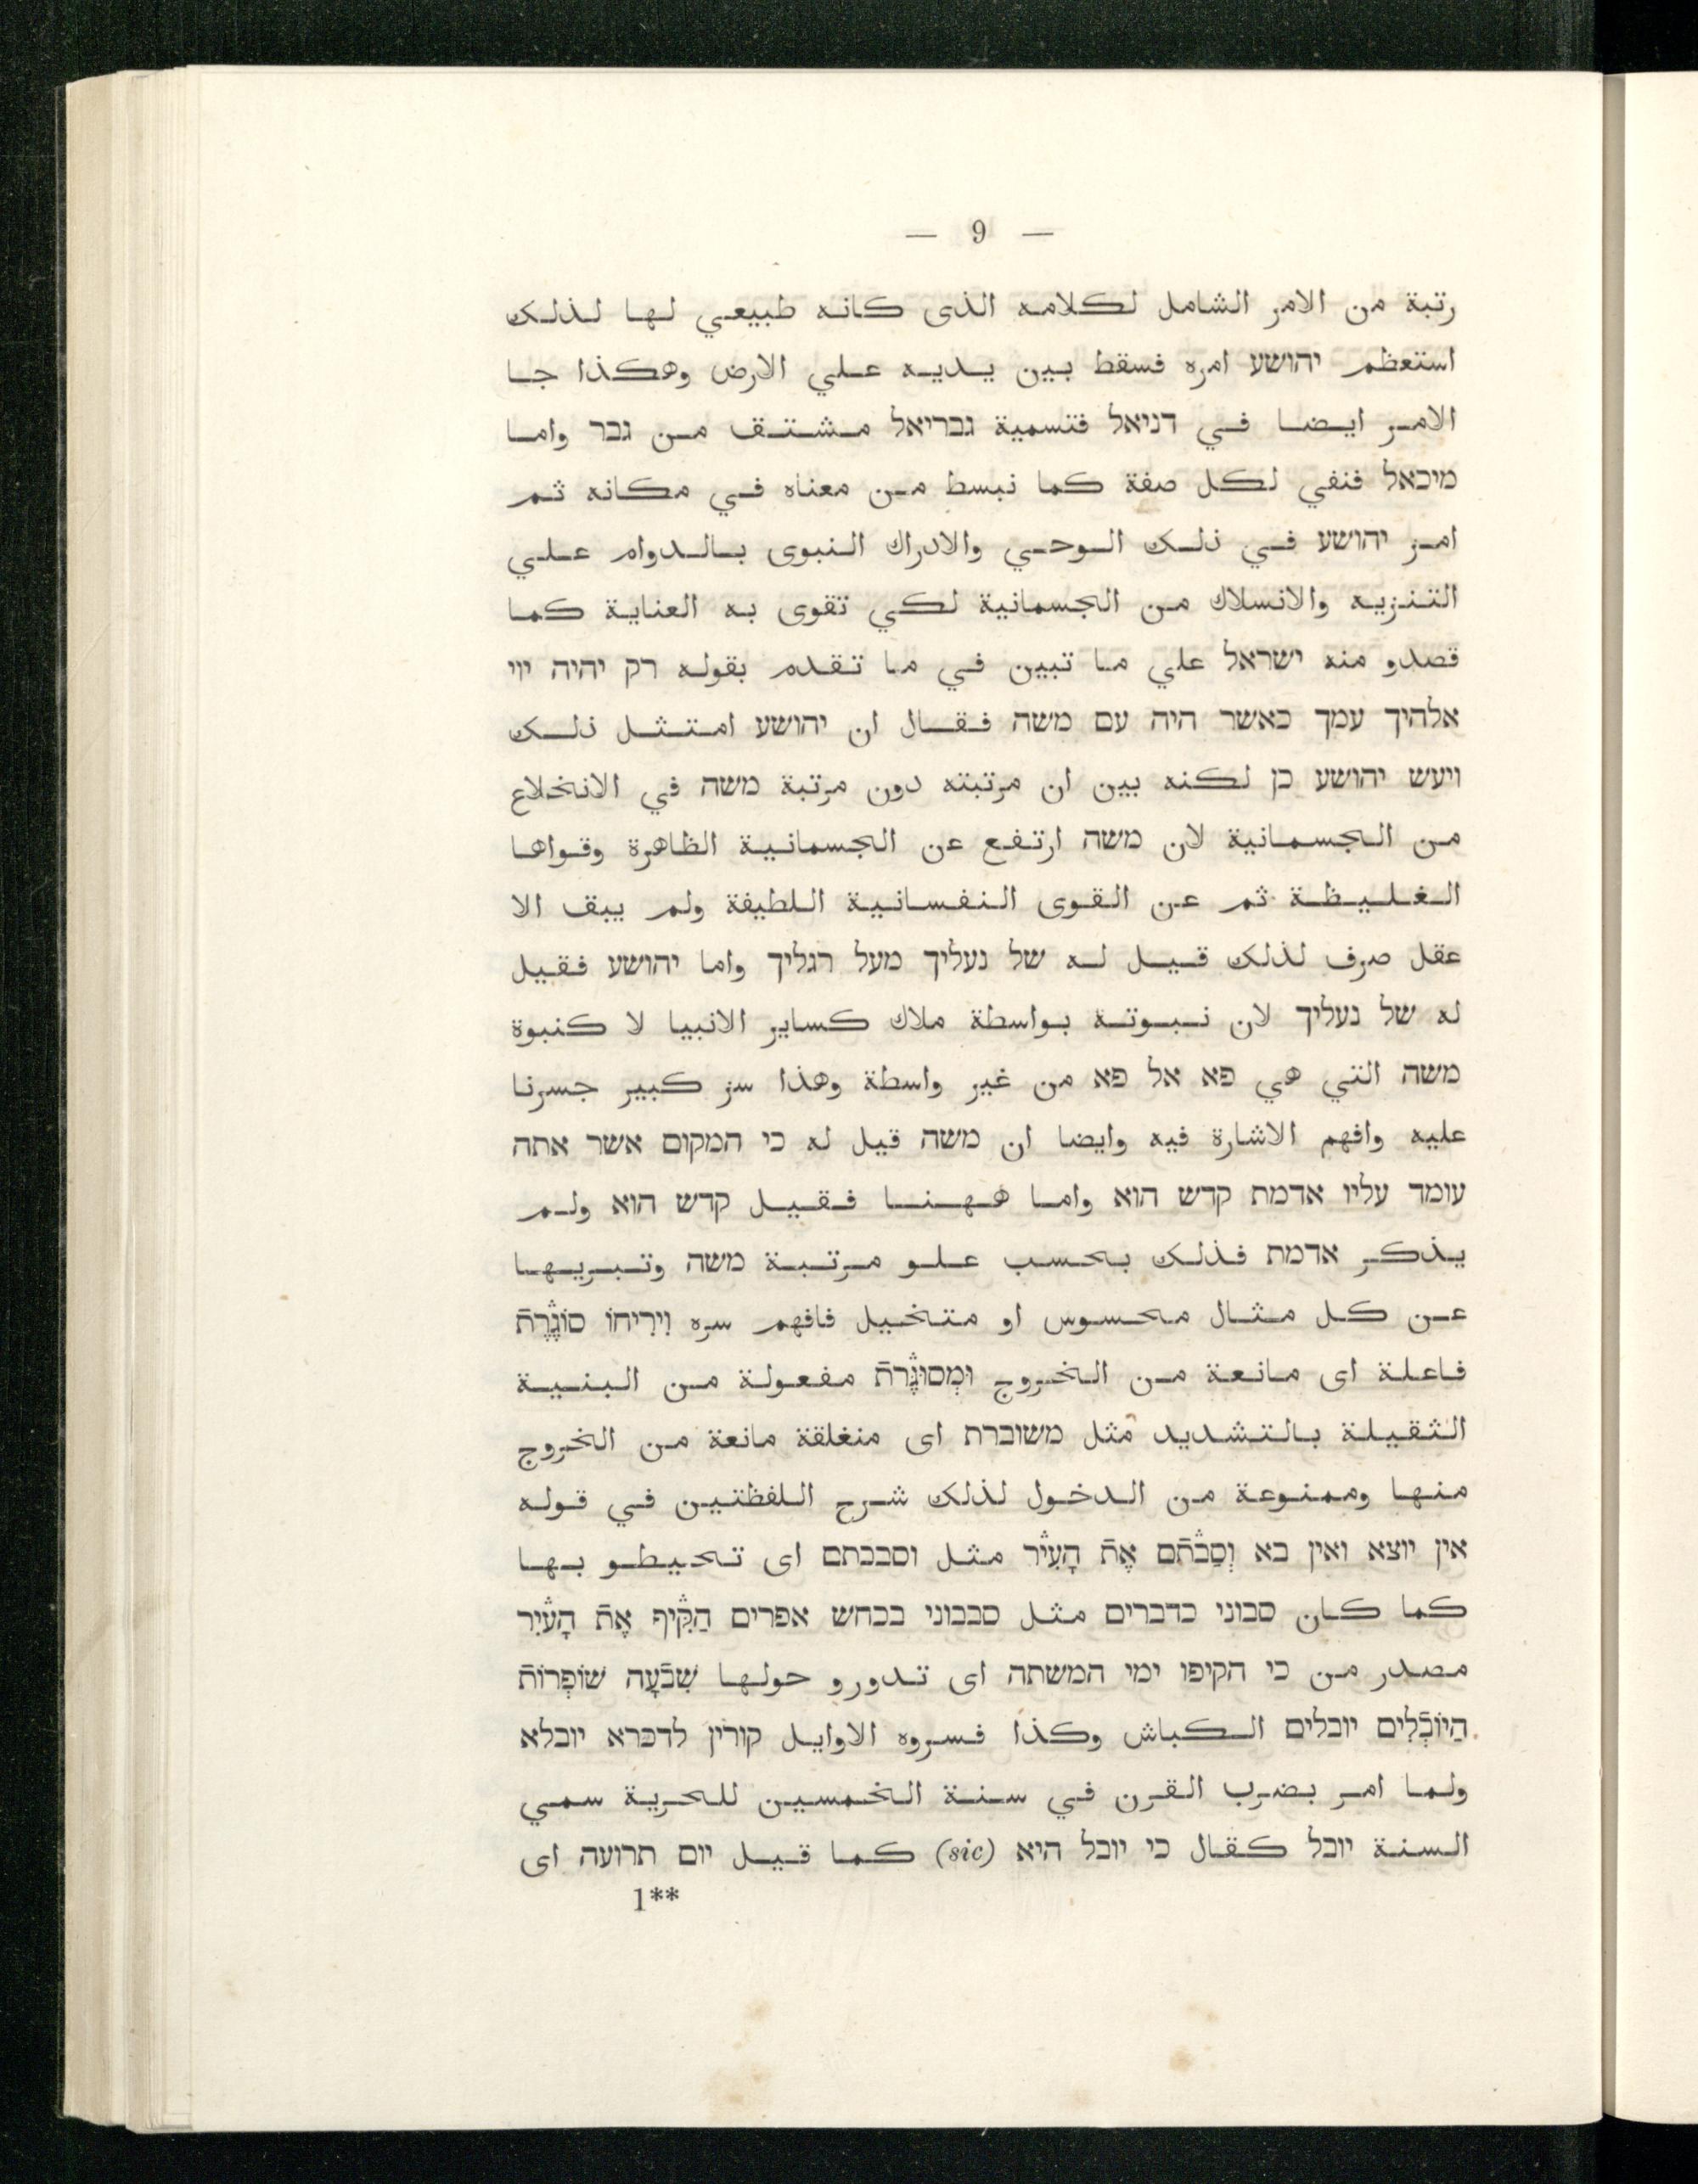 — 9 —
رتبة من الامر الشامل لكلامه الذى كانه طبيعي لها لذلك
استعظم יהושע امره فسقط بين يديه علي الارض وهكذا جا
الامر ايضا في דניאל فتسمية גבריאל مشتق من גבר واما
מיכאל فنفي لكل صفة كما نبسط من معناه في مكانه ثم
امر יהושע في ذلك الوحي والادراك النبوى بالدوام علي
التنزيه والانسلاك من الجسمانية لكي تقوى به العناية كما
قصدو منه ישראל علي ما تبين في ما تقدم بقوله רק יהיה ייי
אלהיך עמך כאשר היה עם משה فقال ان יהושע امتثل ذلك
ויעש יהושע כן لكنه بين ان مرتبته دون مرتبة משה في الانخلاع
من الجسمانية لان משה ارتفع عن الجسمانية الظاهرة وقواها
الغليظة ثم عن القوى النفسانية اللطيفة ولم يبق الا
عقل صرف لذلك قيل له של נעליך מעל רגליך واما יהושע فقيل
له של נעליך لان نبوته بواسطة ملاك كساير الانبيا لا كنبوة
משה التي هي פא אל פא من غير واسطة وهذا سر كبير جسرنا
عليه وافهم الاشارة فيه وايضا ان משה قيل له כי המקום אשר אתה
עומד עליו אדמת קדש הוא واما ههنا فقيل קדש הוא ولم
يذكر אדמת فذلك بحسب علو مرتبة משה وتبريها
عن كل مثال محسوس او متخيل فافهم سره וִירִיחוֹ סוֹגֶרֶת
فاعلة اى مانعة من الخروج וּמְסוּגֶּרֶת مفعولة من البنية
الثقيلة بالتشديد مثل משוברת اى منغلقة مانعة من الخروج
منها وممنوعة من الدخول لذلك شرح اللفظتين في قوله
אין יוצא ואין בא וְסַבֹּתֶם אֶת הָעִיר مثل וסבבתם اى تحيطو بها
كما كان סבוני כדברים مثل סבבוני בכחש אפרים הַקֵּיף אֶת הָעִיר
مصدر من כי הקיפו ימי המשתה اى تدورو حولها שִׁבְעָה שׁוֹפְרוֹת
הַיּוֹבְלִים יובלים الكباش وكذا فسروه الاوايل קורין לדכרא יובלא
ولما امر بضرب القرن في سنة الخمسين للحرية سمي
السنة יובל كقال כי יובל היא (sic) كما قيل יום תרועה اى
1**